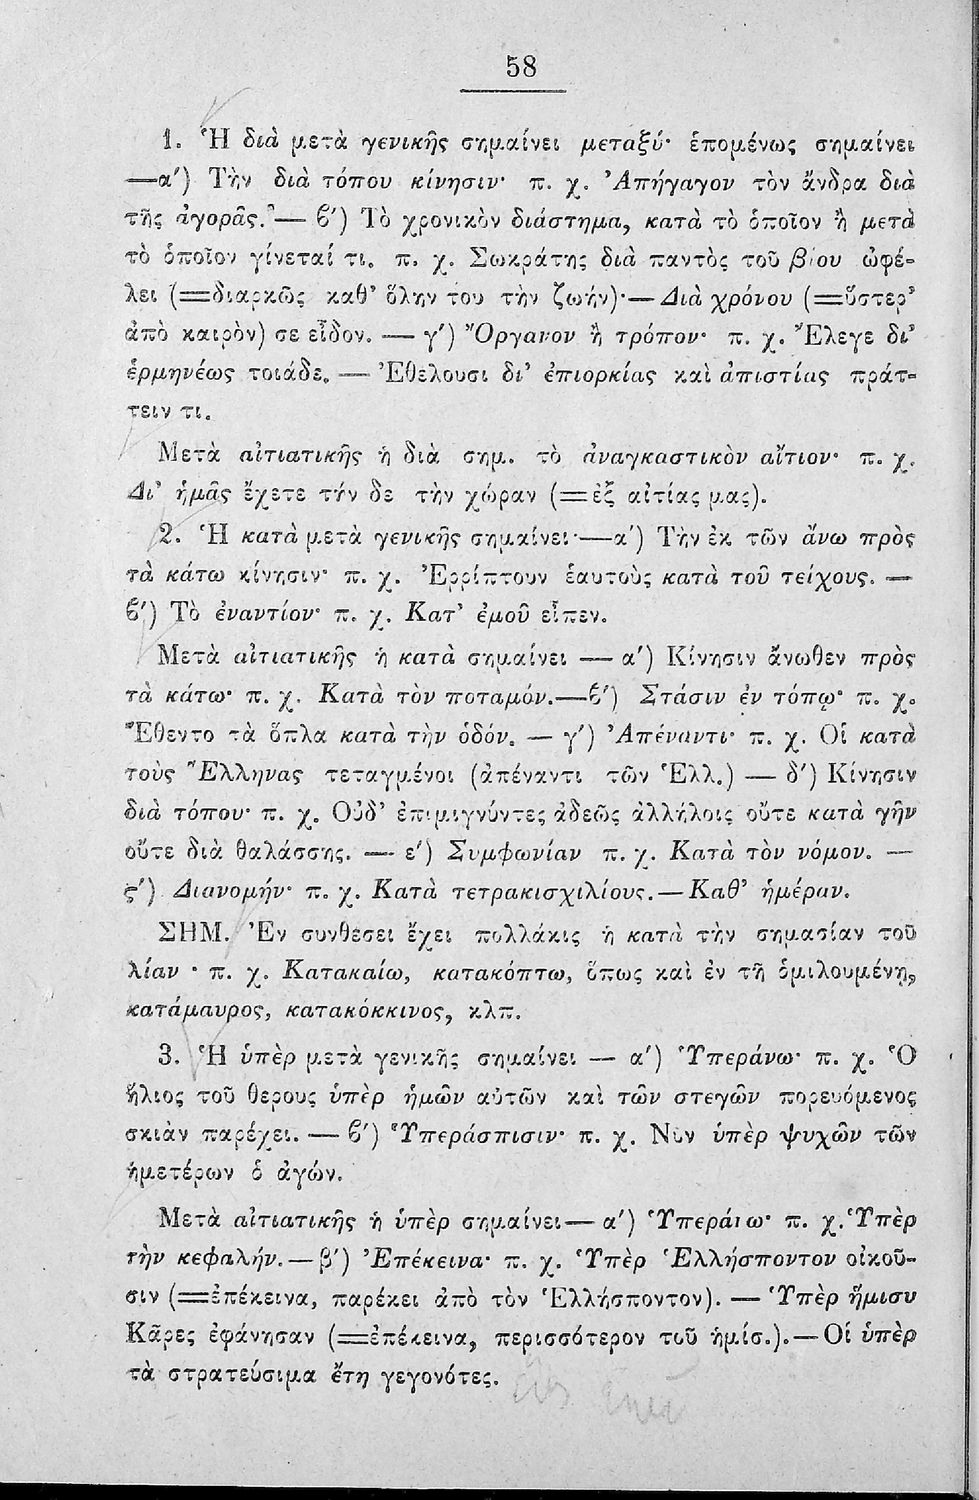 58
1. Ἡ διὰ μετὰ γενικῆς σημαίνει μεταξύ· ἑπομένως σημαίνει
—α′) Τὴν διὰ τόπου κίνησιν· π. χ. Ἀπήγαγον τὸν ἄνδρα διὰ
τῆς ἀγορᾶς.— β′) Τὸ χρονικὸν διάστημα, κατὰ τὸ ὁποῖον ἢ μετὰ
τὸ ὁποῖον γίνεταί τι. π. χ. Σωκράτης διὰ παντὸς τοῦ βίου ὠφέ-
λει (=διαρκῶς καθ’ ὅλην του τὴν ζωήν)·—Διὰ χρόνου (=ὕστερ’
ἀπὸ καιρὸν) σε εἶδον. — γ′) Ὄργανον ἢ τρόπον· π. χ. Ἔλεγε δι’
ἑρμηνέως τοιάδε. — Ἐθελουσι δι’ ἐπιορκίας καὶ ἀπιστίας πράτ-
τειν τι.
Μετὰ αἰτιατικῆς ἡ διὰ σημ. τὸ ἀναγκαστικὸν αἴτιον· π. χ.
Δι’ ἡμᾶς ἔχετε τήν δε τὴν χώραν (=ἐξ αἰτίας μας).
2. Ἡ κατὰ μετὰ γενικῆς σημαίνει·—α′) Τὴν ἐκ τῶν ἄνω πρὸς
τὰ κάτω κίνησιν· π. χ. Ἐρρίπτουν ἑαυτοὺς κατὰ τοῦ τείχους. —
β′) Τὸ ἐναντίον· π. χ. Κατ’ ἐμοῦ εἶπεν.
Μετὰ αἰτιατικῆς ἡ κατὰ σημαίνει — α′) Κίνησιν ἄνωθεν πρὸς
τὰ κάτω· π. χ. Κατὰ τὸν ποταμόν.—β′) Στάσιν ἐν τόπῳ· π. χ.
Ἔθεντο τὰ ὅπλα κατὰ τὴν ὁδόν. — γ′) Ἀπέναντι· π. χ. Οἱ κατὰ
τοὺς Ἕλληνας τεταγμένοι (ἀπέναντι τῶν Ἑλλ.) — δ′) Κίνησιν
διὰ τόπου· π. χ. Οὐδ’ ἐπιμιγνύντες ἀδεῶς ἀλλήλοις οὔτε κατὰ γῆν
οὔτε διὰ θαλάσσης. — ε′) Συμφωνίαν π. χ. Κατὰ τὸν νόμον. —
ς′) Διανομήν· π. χ. Κατὰ τετρακισχιλίους.—Καθ’ ἡμέραν.
ΣΗΜ. Ἐν συνθέσει ἔχει πολλάκις ἡ κατὰ τὴν σημασίαν τοῦ
λίαν · π. χ. Κατακαίω, κατακόπτω, ὅπως καὶ ἐν τῇ ὁμιλουμένῃ,
κατάμαυρος, κατακόκκινος, κλπ.
3. Ἡ ὑπὲρ μετὰ γενικῆς σημαίνει — α′) Ὑπεράνω· π. χ. Ὁ
ἥλιος τοῦ θερους ὑπὲρ ἡμῶν αὐτῶν καὶ τῶν στεγῶν πορευόμενος
σκιὰν παρέχει. — β′) Ὑπεράσπισιν· π. χ. Νῦν ὑπὲρ ψυχῶν τῶν
ἡμετέρων ὁ ἀγών.
Μετὰ αἰτιατικῆς ἡ ὑπὲρ σημαίνει— α′) Ὑπεράνω· π. χ. Ὑπὲρ
τὴν κεφαλήν.—β′) Ἐπέκεινα· π. χ. Ὑπὲρ Ἑλλήσποντον οἰκοῦ-
σιν (=ἐπέκεινα, παρέκει ἀπὸ τὸν Ἑλλήσποντον). — Ὑπὲρ ἥμισυ
Κᾶρες ἐφάνησαν (=ἐπέκεινα, περισσότερον τοῦ ἡμίσ.).—Οἱ ὑπὲρ
τὰ στρατεύσιμα ἔτη γεγονότες.